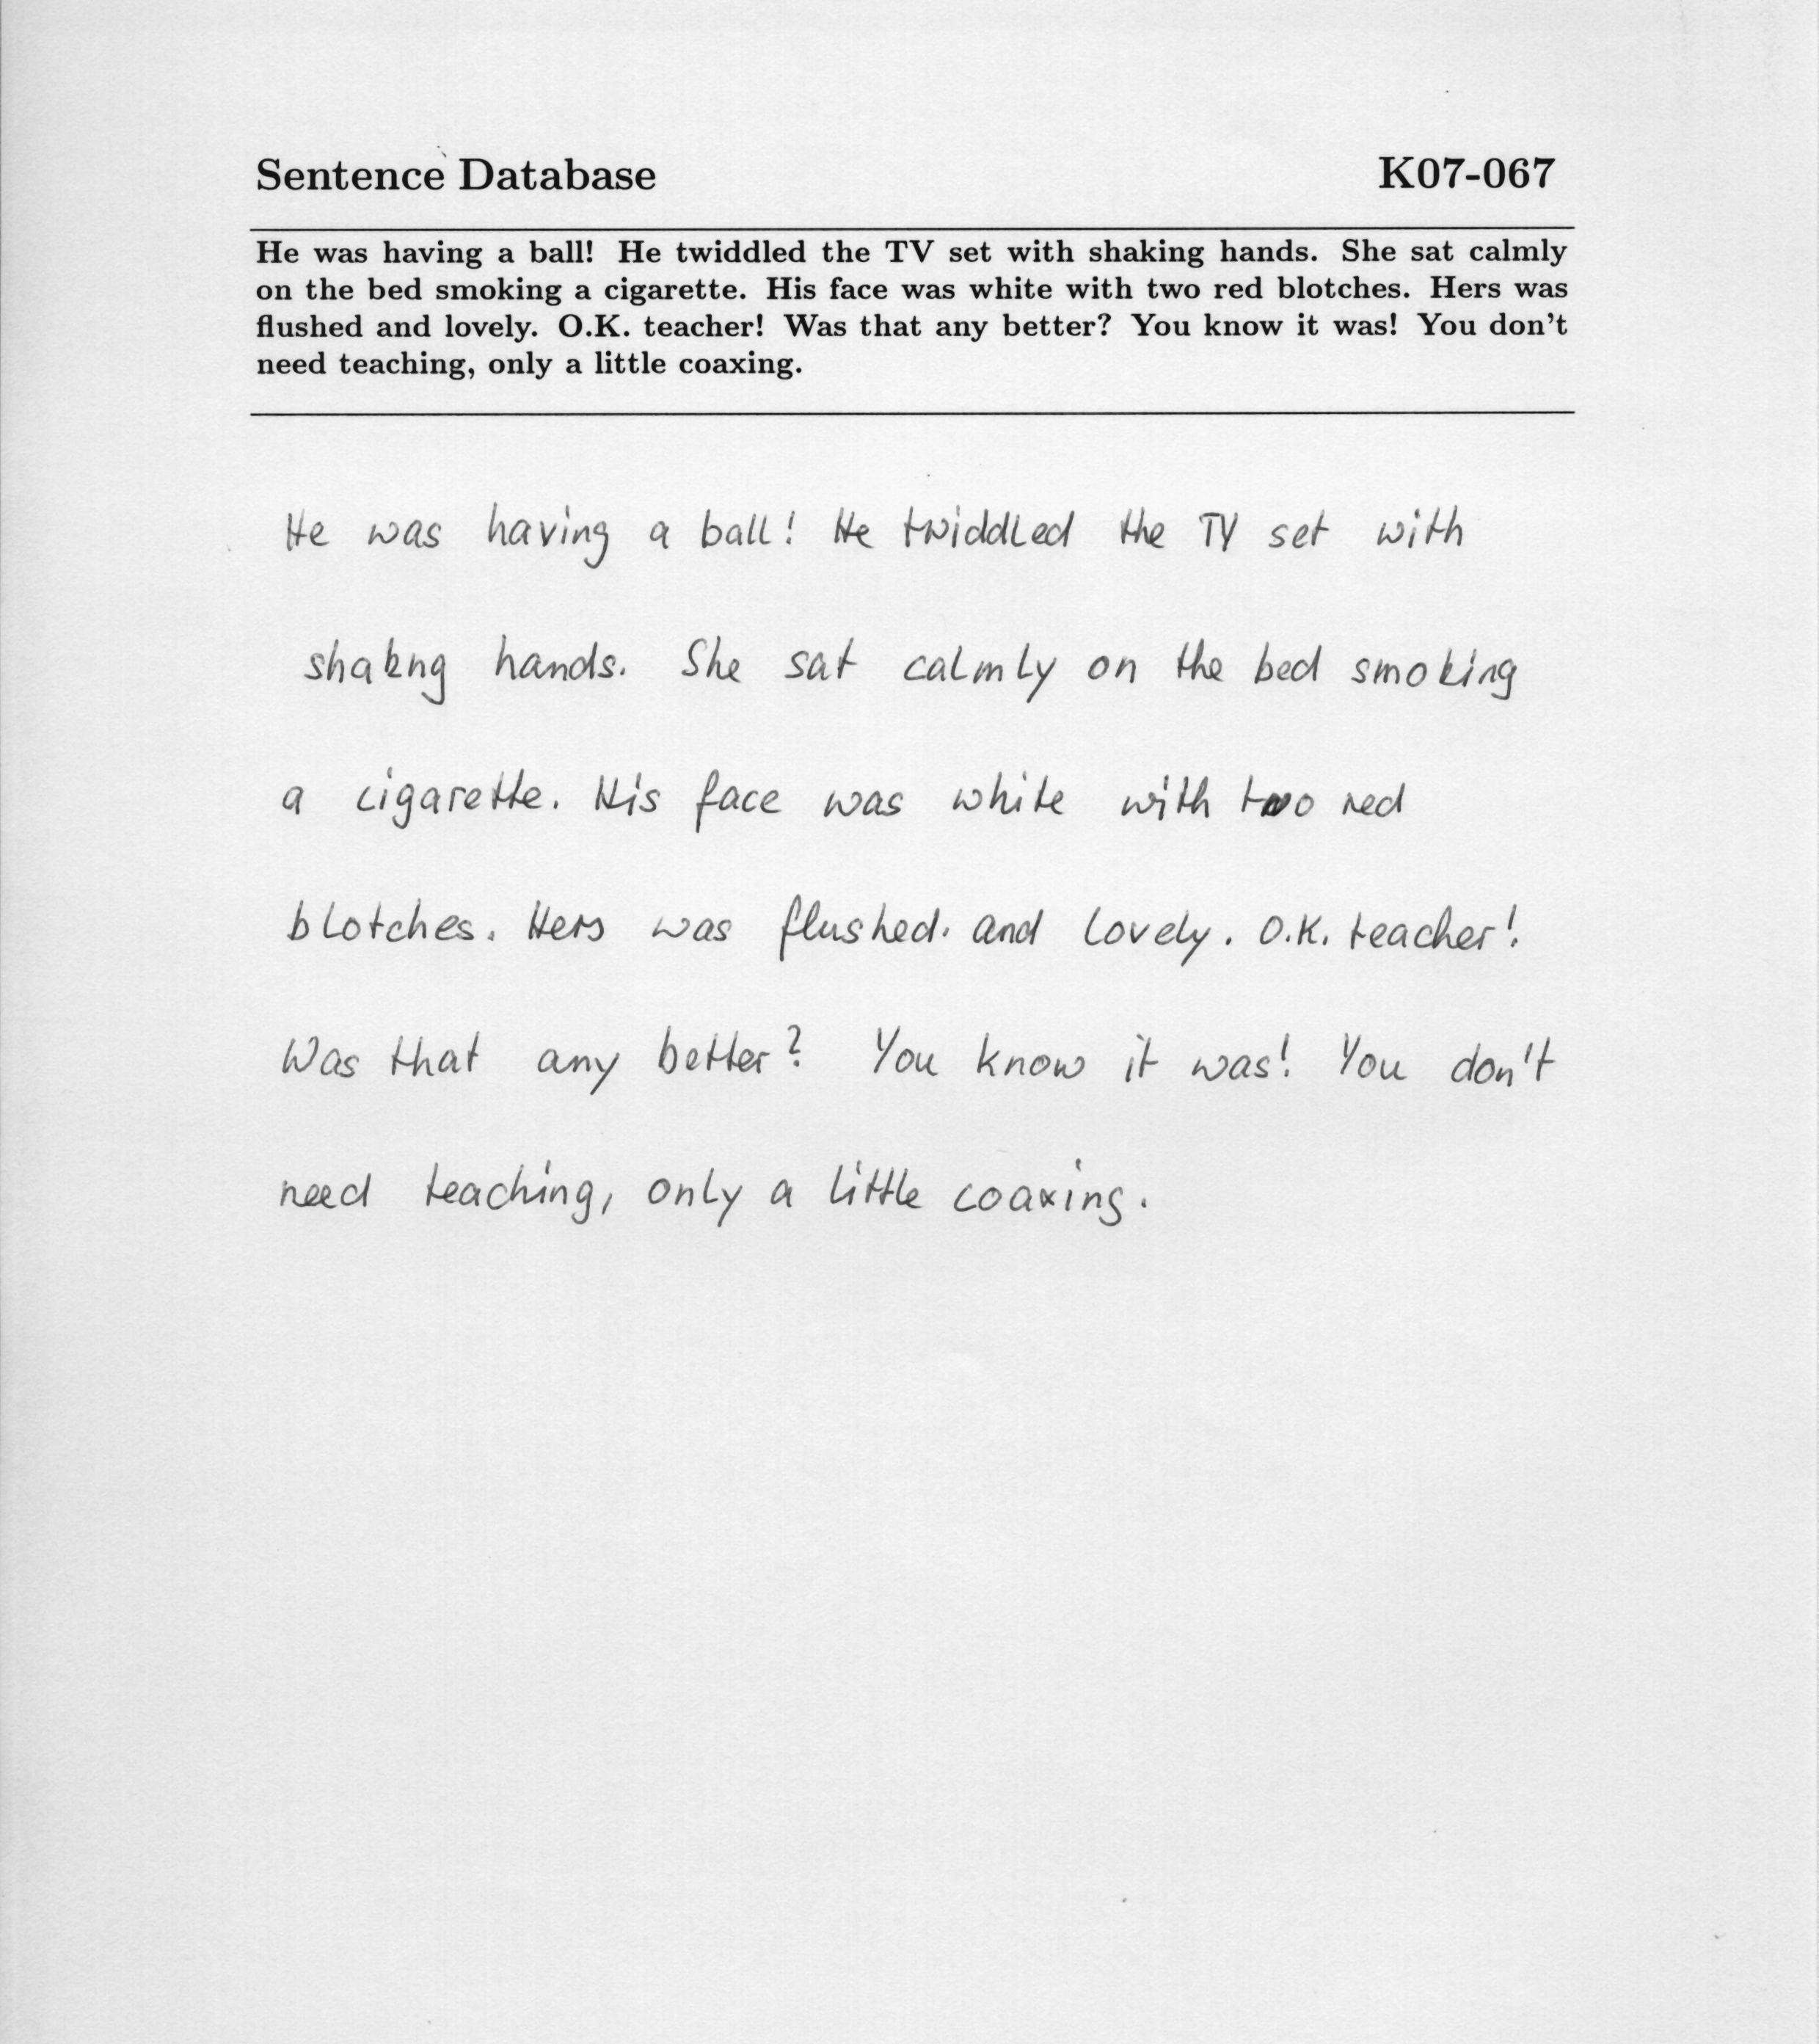 Sentence Database K07-067
He was having a ball! He twiddled the TV set with shaking hands. She sat calmly
on the bed smoking a cigarette. His face was white with two red blotches. Hers was
flushed and lovely. O.K. teacher! Was that any better? You know it was! You don't
need teaching, only a little coaxing.
He was having a ball! He twiddled the TV set with
shakng hands. She sat calmly on the bed smoking
a cigarette. His face was white with two red
blotches. Hers was flushed. and lovely. O.K. teacher!
Was that any better? You know it was! You don't
need teaching, only a little coaxing.